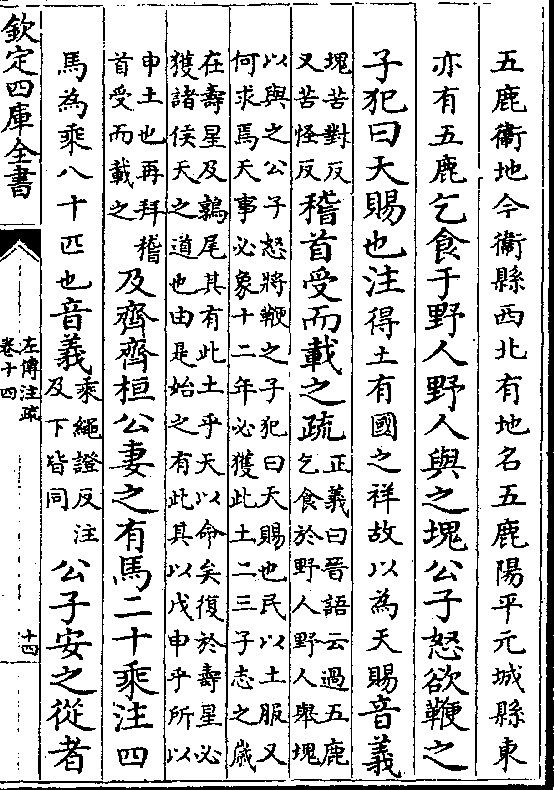 五鹿衞地今衞縣西北有地名五鹿陽平元城縣東
亦有五鹿乞食于野人野人與之塊公子怒欲鞭之
子犯曰天賜也注得土有國之祥故以為天賜音義
塊苦對反
又苦怪反
稽首受而載之疏
正義曰晉語云過五鹿
乞食於野人野人舉塊
以與之公子怒將鞭之子犯曰天賜也民以土服又
何求焉天事必象十二年必獲此土二三子志之歲
在壽星及鶉尾其有此土乎天以命矣復於壽星必
獲諸侯天之道也由是始之有此其以戊申乎所以
申土也再拜稽
首受而載之
及齊齊桓公妻之有馬二十乘注四
馬為乘八十匹也音義
乘繩證反注
及下皆同
公子安之從者
欽定四庫全書
左傳注疏
卷十四
十四